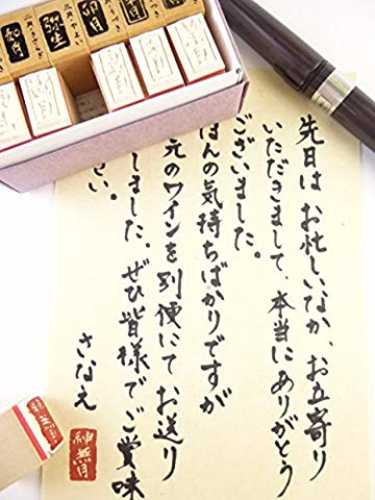 先日は お忙しいなか、お立寄り
いただきまして、本当にありがとう
ございました。
ほんの気持ちばかりですが
元のワインを別便にてお送り
しました。ぜひ皆様でご賞味
さい。
さなえ
神無月
卯月
弥生
如月